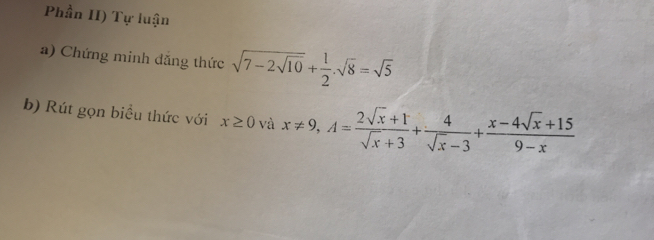 Phần II) Tự luận
a) Chứng minh đẳng thức $\sqrt{7-2\sqrt{10}}+\frac{1}{2}.\sqrt{8}=\sqrt{5}$
b) Rút gọn biểu thức với $x\geq 0$ và $x\neq 9$, $A=\frac{2\sqrt{x}+1}{\sqrt{x}+3}+\frac{4}{\sqrt{x}-3}+\frac{x-4\sqrt{x}+15}{9-x}$